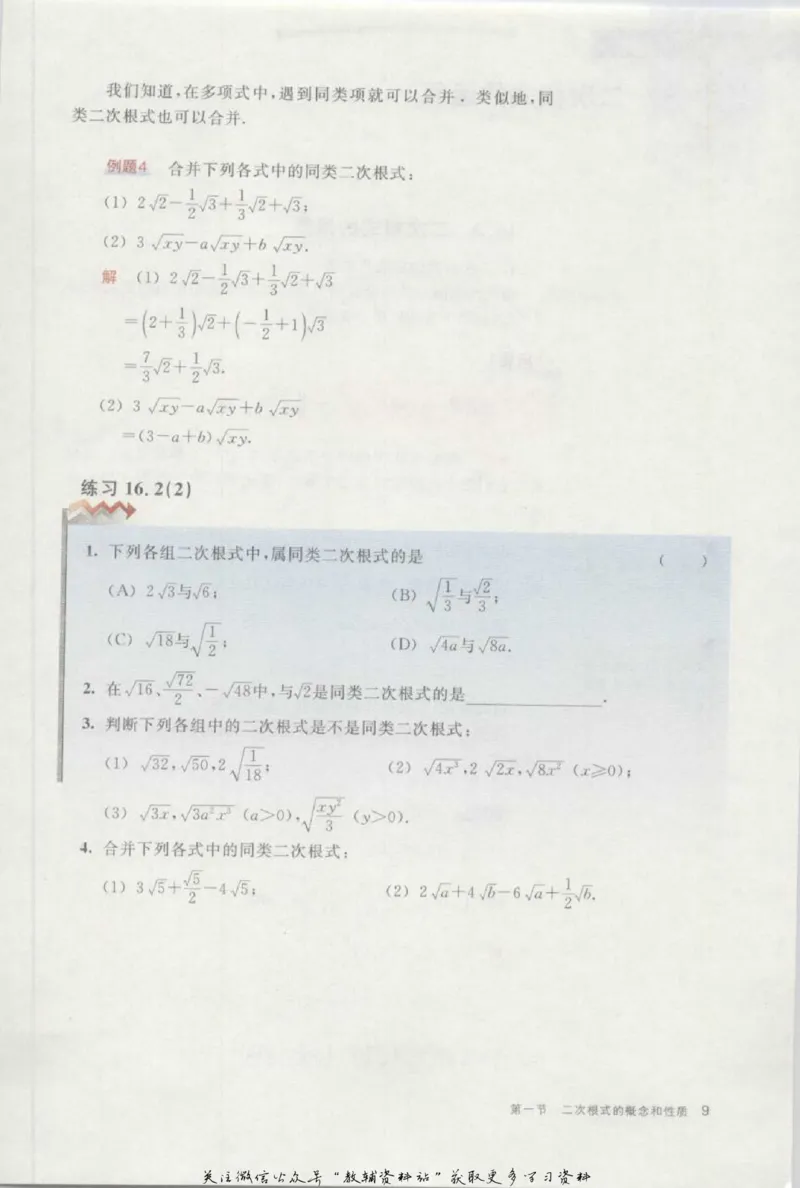 我们知道,在多项式中,遇到同类项就可以合并.类似地,同
类二次根式也可以合并.
例题4 合并下列各式中的同类二次根式:
(1) 2√2-1/2√3+1/3√2+√3;
(2) 3√xy-a√xy+b√xy.
解 (1) 2√2-1/2√3+1/3√2+√3
=(2+1/3)√2+(-1/2+1)√3
=7/3√2+1/2√3.
(2) 3√xy-a√xy+b√xy
=(3-a+b)√xy.
练习 16.2(2)
1. 下列各组二次根式中,属同类二次根式的是 ( )
(A) 2√3与√6; (B) √(1/3)与√2/3;
(C) √18与√(1/2); (D) √4a与√8a.
2. 在√16、√72/2、-√48中,与√2是同类二次根式的是____________.
3. 判断下列各组中的二次根式是不是同类二次根式:
(1) √32,√50,2√(1/18); (2) √4x³,2√2x,√8x² (x⩾0);
(3) √3x,√3a²x³ (a>0),√(xy²/3) (y>0).
4. 合并下列各式中的同类二次根式:
(1) 3√5+√5/2-4√5; (2) 2√a+4√b-6√a+1/2√b.
第一节 二次根式的概念和性质 9
关注微信公众号“教辅资料站”获取更多学习资料